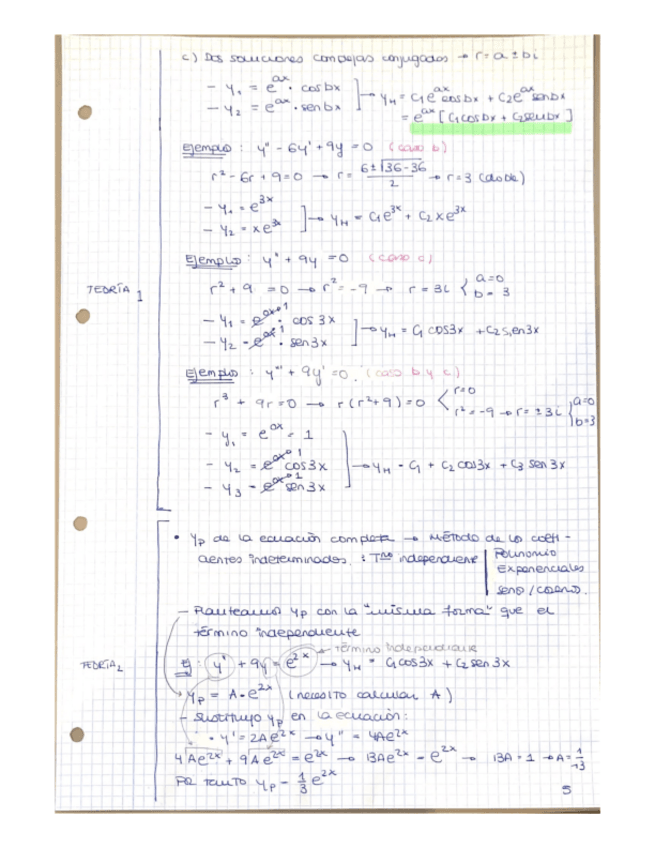 c) Dos soluciones complejas conjugados → r = a ± bi
- y₁ = e^ax · cosbx
- y₂ = e^ax · senbx ] → y_H = C₁e^ax cosbx + C₂e^ax senbx
= e^ax [C₁cosbx + C₂senbx]
Ejemplo: y'' - 6y' + 9y = 0 (caso b)
r² - 6r + 9 = 0 → r = 6±√36-36 / 2 → r = 3 (doble)
- y₁ = e^3x
- y₂ = xe^3x ] → y_H = C₁e^3x + C₂xe^3x
Ejemplo: y'' + 9y = 0 (caso c)
TEORÍA 1
r² + 9 = 0 → r² = -9 → r = 3i { a=0 b=3
- y₁ = e^0x 1 · cos 3x
- y₂ = e^0x 1 · sen3x ] → y_H = C₁ cos3x + C₂ sen3x
Ejemplo: y''' + 9y' = 0. (caso b y c)
r³ + 9r = 0 → r(r²+9) = 0 < r=0 r² = -9 → r = ±3i { a=0 b=3
- y₁ = e^0x = 1
- y₂ = e^0x 1 cos3x
- y₃ = e^0x 1 sen3x ] → y_H = C₁ + C₂ cos3x + C₃ sen3x
• yp de la ecuación completa → Método de los coefi-
cientes indeterminados. : T^no independiente | Polinomio
Exponenciales
seno/coseno.
- Planteamos yp con la "misma forma" que el
término independiente
← término independiente
TEORÍA 2
Ej: y'' + 9y = e^2x → y_H = C₁cos3x + C₂sen3x
yp = A·e^2x (necesito calcular A)
- Sustituyo yp en la ecuación:
• y' = 2Ae^2x → y'' = 4Ae^2x
4Ae^2x + 9Ae^2x = e^2x → 13Ae^2x = e^2x → 13A = 1 → A = 1/13
Por tanto yp = 1/3 e^2x
5